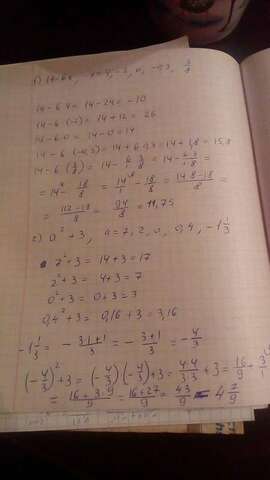 14-6·4 = 14-24 = -10
14-6·(-2) = 14+12 = 26
14-6·0 = 14-0 = 14
14-6·(-0,3) = 14+6·0,3 = 14+1,8 = 15,8
14-6·(3/8) = 14 - 6·3/8 = 14 - 6·3/8 =
= 14 - 18/8 = 14/1 - 18/8 = 14·8-18/8 =
= 112-18/8 = 94/8 = 11,75
2) a² + 3, a = 7, 2, 0, 0,4, -1 1/3
7²+3 = 14+3 = 17
2²+3 = 4+3 = 7
0²+3 = 0+3 = 3
0,4²+3 = 0,16+3 = 3,16
-1 1/3 = - 3·1+1/3 = - 3+1/3 = - 4/3
(-4/3)²+3 = (-4/3)·(-4/3)+3 = 4·4/3·3 + 3 = 16/9 + 3/1
= 16+3·9/9 = 16+27/9 = 43/9 = 4 7/9